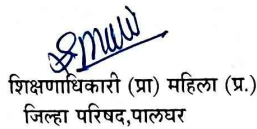 शिक्षणाधिकारी (प्रा) महिला (प्र.)
जिल्हा परिषद,पालघर